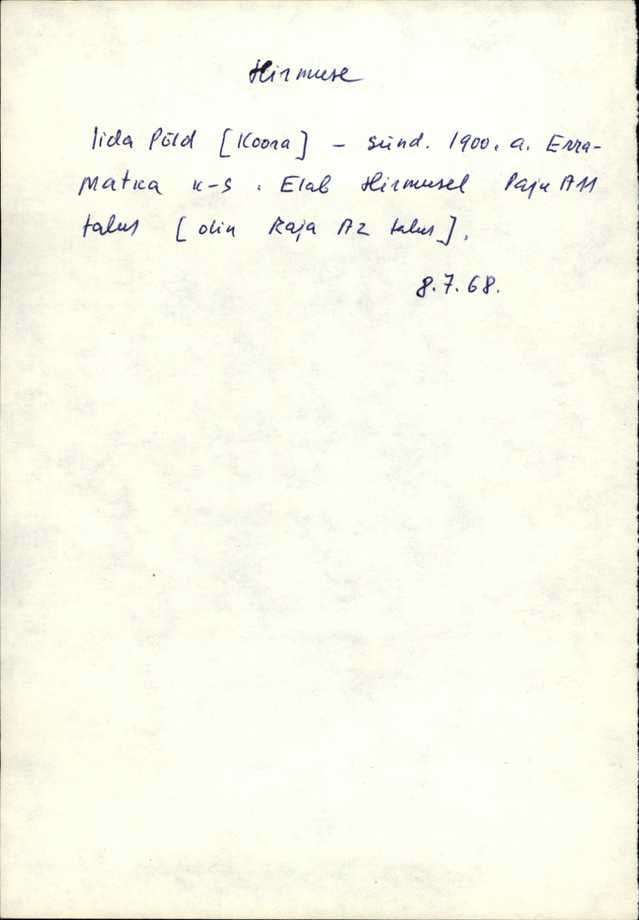 Hirmuse
Iida Põld [Koora] – sünd. 1900. a. Erra-
Matka k-s. Elab Hirmusel Paju A11
talus [olin Raja A2 talus].
8.7.68.